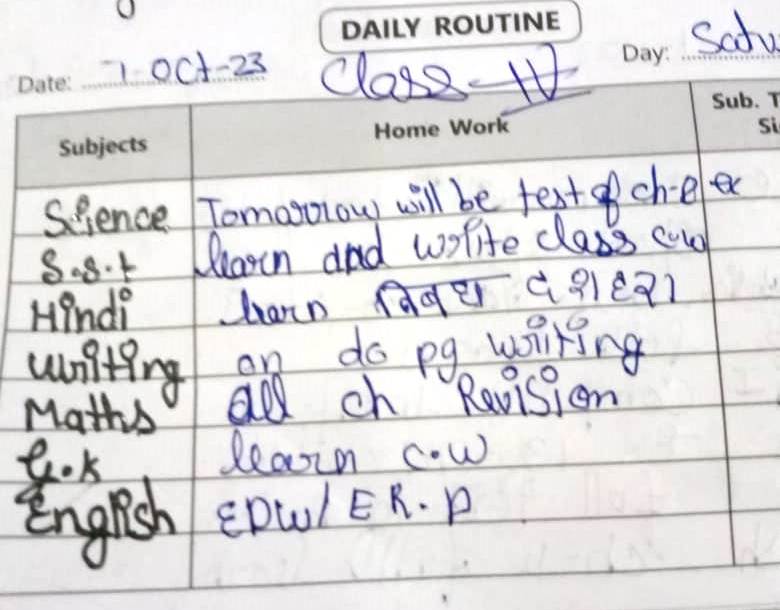 DAILY ROUTINE
Date: 7-Oct-23 Class-IV Day: Satu
Subjects Home Work Sub. T
Si
Science Tomorrow will be test of ch-8
S.s.t learn and write class c.w
Hindi learn निबंध दशहरा
Writing on do pg writing
Maths all ch Revision
G.K learn c.w
English EDW/ E R. D